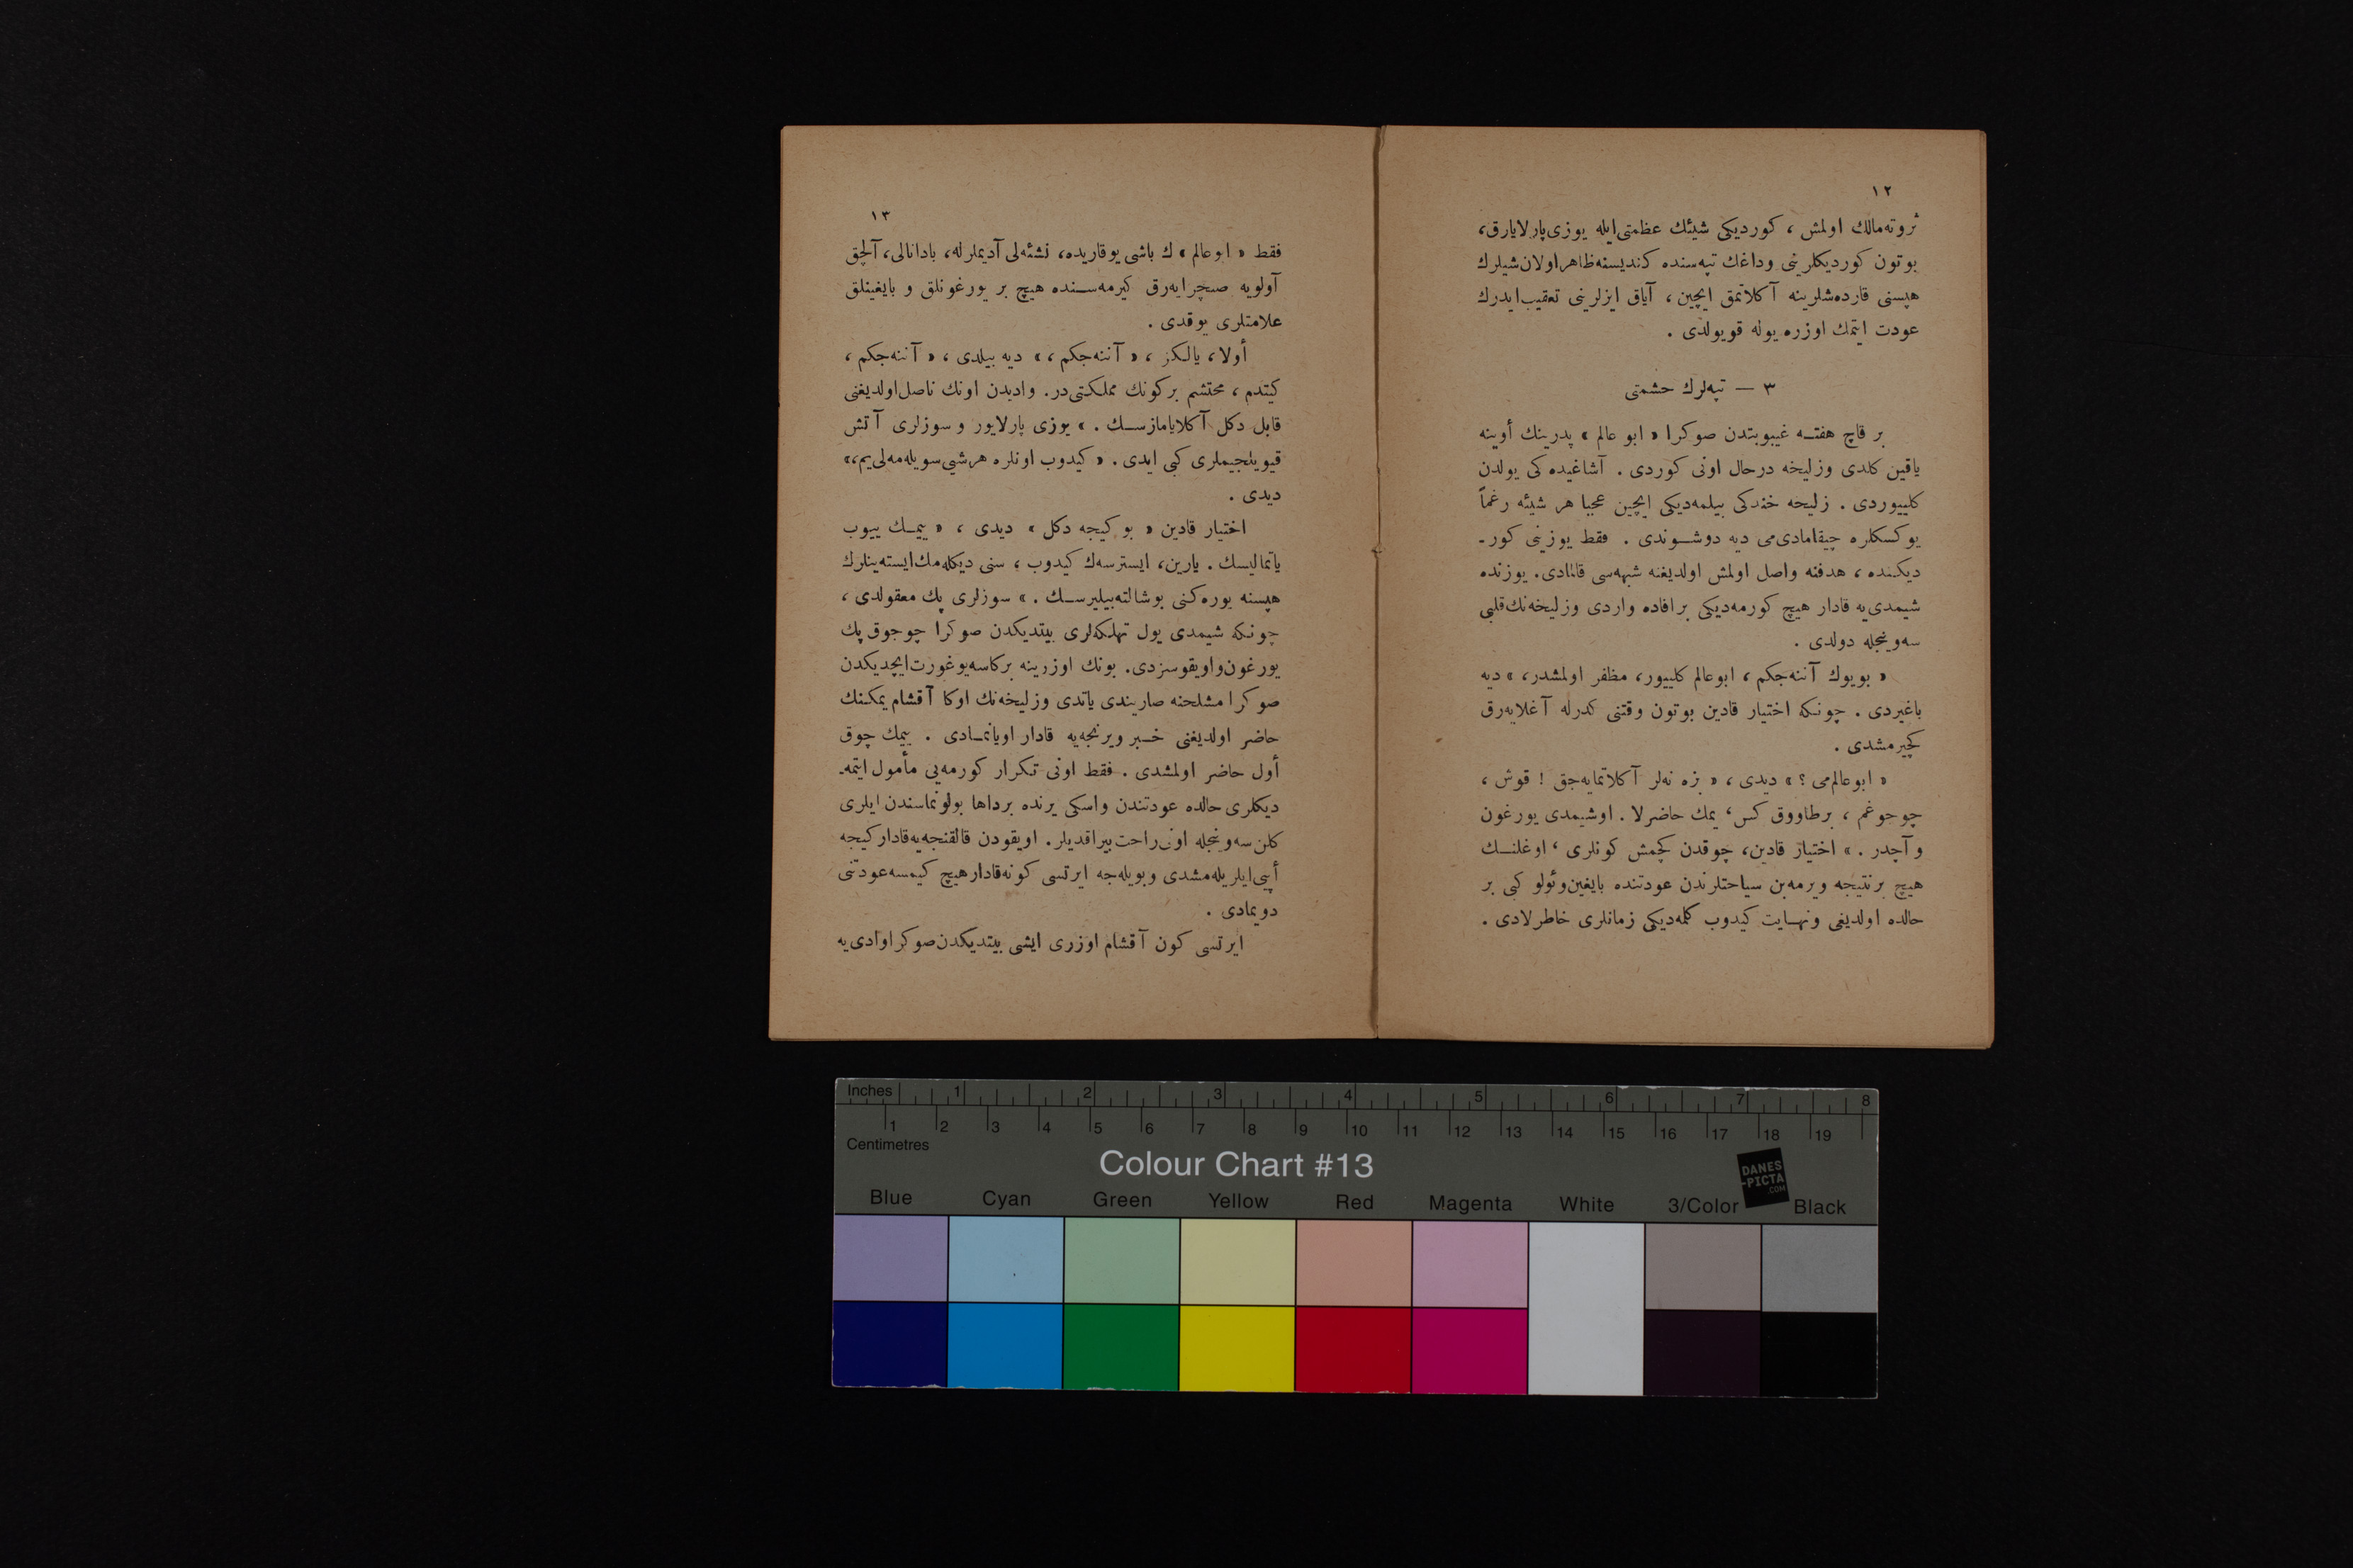 ١٢
ثروته‌مالك اولمش ، كورديكى شيئك عظمتى‌ايله يوزى‌پارلايارق،
بوتون كورديكلرينى وداغك تپه‌سنده كنديسنه‌ظاهراولان‌شيلرك
هپسنى قارده‌شلرينه آكلاتمق ايچين ، آياق ايزلرينى تعقيب‌ايدرك
عودت ايتمك اوزره يوله قويولدى .
٣ — تپه‌لرك حشمتى
بر قاچ هفتــه غيبوبتدن صوكرا « ابو عالم » پدرينك أوينه
ياقين كلدى وزليخه درحال اونى كوردى . آشاغيده كى يولدن
كلييوردى . زليخه خندكى بيلمه‌ديكى ايچين عجبا هر شيئه رغماً
يوكسكلره چيقامادى‌مى ديه دوشــوندى . فقط يوزينى كور-
ديكنده ، هدفنه واصل اولمش اولديغنه شبهه‌سى قالمادى. يوزنده
شيمدى‌يه قادار هيچ كورمه‌ديكى برافاده واردى وزليخه‌نك‌قلبى
سه‌وينجله دولدى .
« بويوك آننه‌جكم ، ابوعالم كلييور، مظفر اولمشدر، » ديه
باغيردى . چونكه اختيار قادين بوتون وقتنى كدرله آغلايه‌رق
كچيرمشدى .
« ابوعالم‌مى ؟ » ديدى ، « بزه نه‌لر آكلاتمايه‌جق ! قوش ،
چوجوغم ، برطاووق كس، يمك حاضرلا . اوشيمدى يورغون
و آچدر . » اختيار قادين، چوقدن كچمش كونلرى ، اوغلنــك
هيچ برنتيجه ويرمه‌ين سياحتلرندن عودتنده بايغين‌وئولو كبى بر
حالده اولديغى ونهــايت كيدوب كلمه‌ديكى زمانلرى خاطرلادى .
١٣
فقط « ابوعالم » ك باشى يوقاريده، نشئه‌لى آديملرله، بادانالى، آلچق
آولويه صيچرايه‌رق كيرمه‌ســنده هيچ بر يورغونلق و بايغينلق
علامتلرى يوقدى .
أولا، يالكز ، « آننه‌جكم ، » ديه بيلدى ، « آننه‌جكم ،
كيتدم ، محتشم بركونك مملكتى‌در. واديدن اونك ناصل‌اولديغنى
قابل دكل آكلايامازســك . » يوزى پارلايور و سوزلرى آتش
قيويلجيملرى كبى ايدى . « كيدوب اونلره هرشيى‌سويله‌مه‌لى‌يم،»
ديدى .
اختيار قادين « بو كيجه دكل » ديدى ، « ييمــك ييوب
ياتماليسك . يارين، ايسترسه‌ك كيدوب ، سنى ديكله‌مك‌ايسته‌ينلرك
هپسنه يوره‌كنى بوشالته‌بيليرســك . » سوزلرى پك معقولدى ،
چونكه شيمدى يول تهلكه‌لرى بيتديكدن صوكرا چوجوق پك
يورغون‌واويقوسزدى. بونك اوزرينه بركاسه‌يوغورت‌ايچديكدن
صوكرا مشلحنه صاريندى ياتدى وزليخه‌نك اوكا آقشام يمكنك
حاضر اولديغنى خــبر ويرنجه‌يه قادار اويانمــادى . ييمك چوق
أول حاضر اولمشدى . فقط اونى تكرار كورمه‌يى مأمول ايتمه-
ديكلرى حالده عودتندن واسكى يرنده برداها بولونماسندن ايلرى
كلن سه‌وينجله اونى‌راحت‌بيراقديلر. اويقودن قالقنجه‌يه‌قاداركيجه
أپيى‌ايلريله‌مشدى وبويله‌جه ايرتسى كونه‌قادارهيچ كيمسه‌عودتنى
دويمادى .
ايرتسى كون آقشام اوزرى ايشى بيتديكدن‌صوكراوادى‌يه
Inches 1 2 3 4 5 6 7 8
1 2 3 4 5 6 7 8 9 10 11 12 13 14 15 16 17 18 19
Centimetres
Colour Chart #13
DANES
-PICTA
.COM
Blue Cyan Green Yellow Red Magenta White 3/Color Black